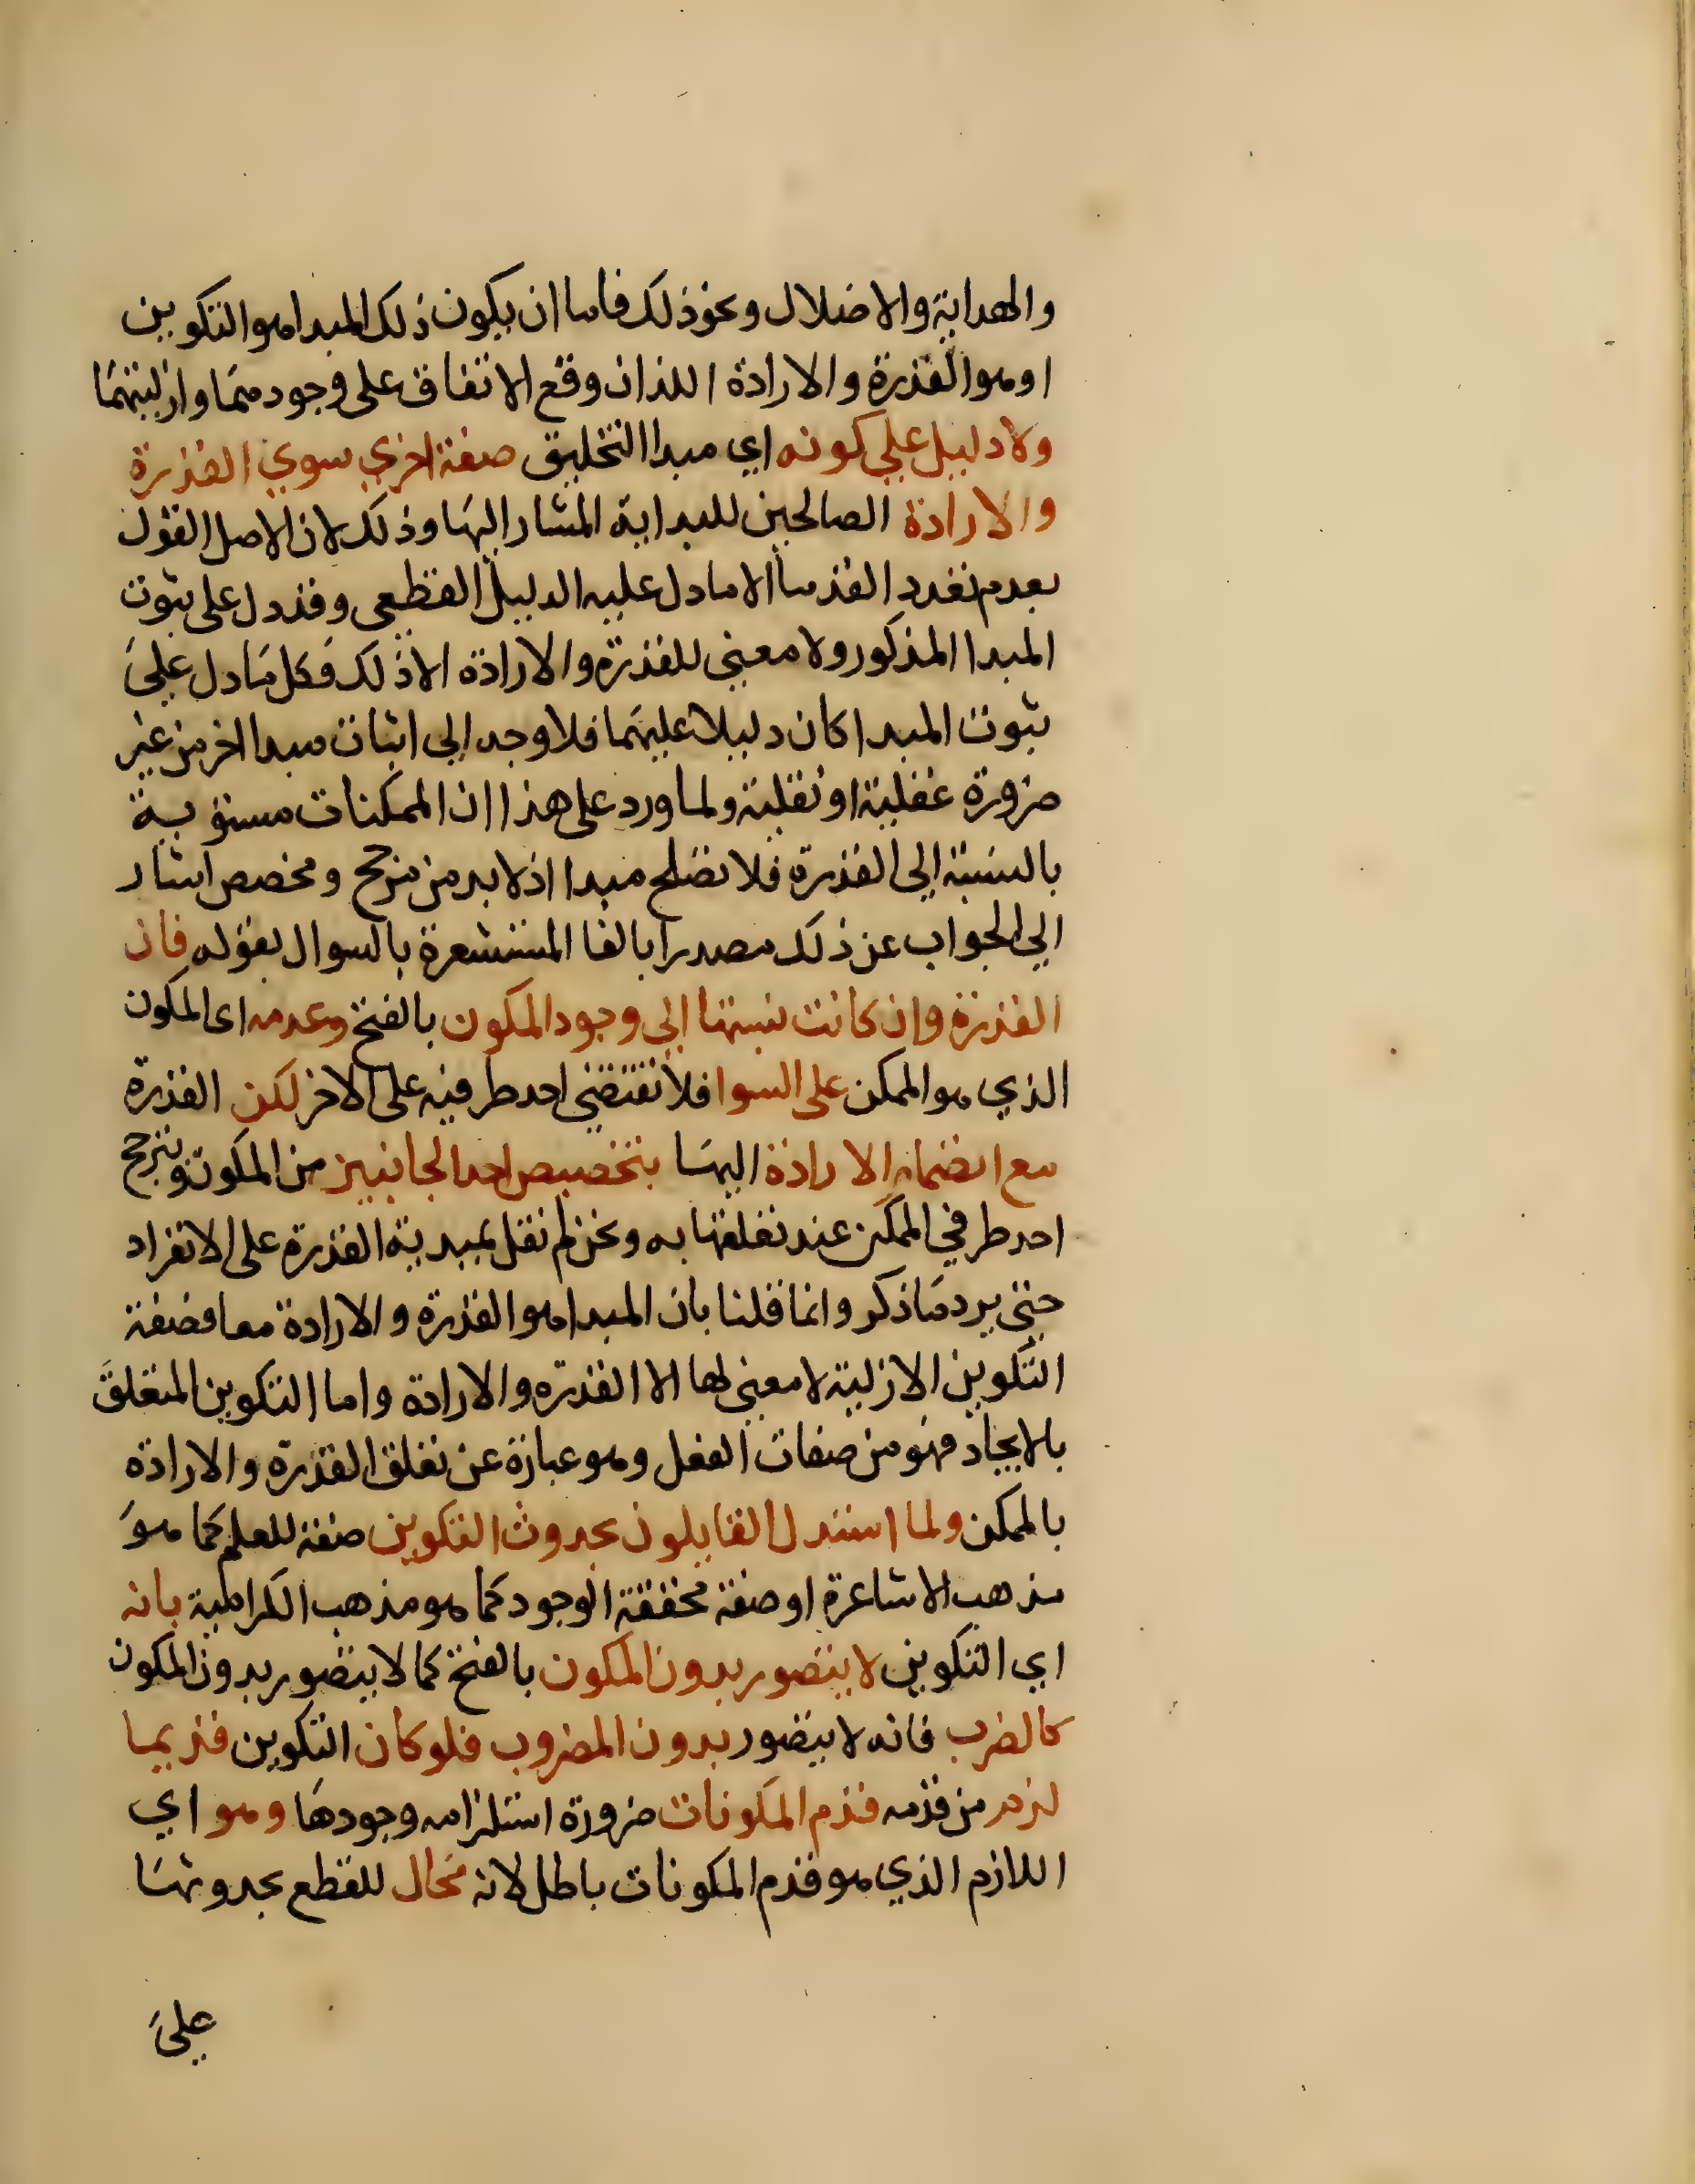 والهداية والاضلال ونحو ذلك فاما ان يكون ذلك المبدا هو التكوين
او هو القدرة والارادة اللذان وقع الاتفاق على وجودهما وازليتهما
ولا دليل علي كونه اي مبدا التخليق صفة اخري سوي القدرة
والارادة الصالحين للبداية المشار اليها وذلك لان الاصل القول
بعدم تعدد القدما الا ما دل عليه الدليل القطعي وقد دل على ثبوت
المبدا المذكور ولا معني للقدرة والارادة الا ذلك فكل ما دل علي
ثبوت المبدا كان دليلا عليهما فلا وجه الي اثبات مبدا اخر من غير
ضرورة عقلية او نقلية ولما ورد على هذا ان الممكنات مستوية
بالنسبة الي القدرة فلا تصلح مبدا اذ لا بد من مرجح ومخصص اشار
الي الجواب عن ذلك مصدرا بالفا المستشعرة بالسوال بقوله فان
القدرة وان كانت نسبتها الي وجود المكون بالفتح وعدمه اى المكون
الذي هو الممكن على السوا فلا تقتضي احد طرفيه على الاخر لكن القدرة
مع انضمام الارادة اليها بتخصيص احد الجانبين من المكون وترجح
احد طرفي الممكن عند تعلقها به ونحن لم نقل بمبدية القدرة على الانفراد
حتي يرد ما ذكر وانما قلنا بان المبدا هو القدرة والارادة معا فصفة
التكوين الازلية لا معني لها الا القدرة والارادة واما التكوين المتعلق
بالايجاد فهو من صفات الفعل وهو عبارة عن تعلق القدرة والارادة
بالممكن ولما استدل القايلون بحدوث التكوين صفة للعلم كما هو
مذهب الاشاعرة او صفة محققة الوجود كما هو مذهب الكرامية بانه
اي التكوين لا يتصور بدون المكون بالفتح كما لا يتصور بدون المكون
كالضرب فانه لا يتصور بدون المضروب فلو كان التكوين قديما
لزم من قدمه قدم المكونات ضرورة استلزامه وجودها وهو اي
اللازم الذي هو قدم المكونات باطل لانه محال للقطع بحدوثها
علي